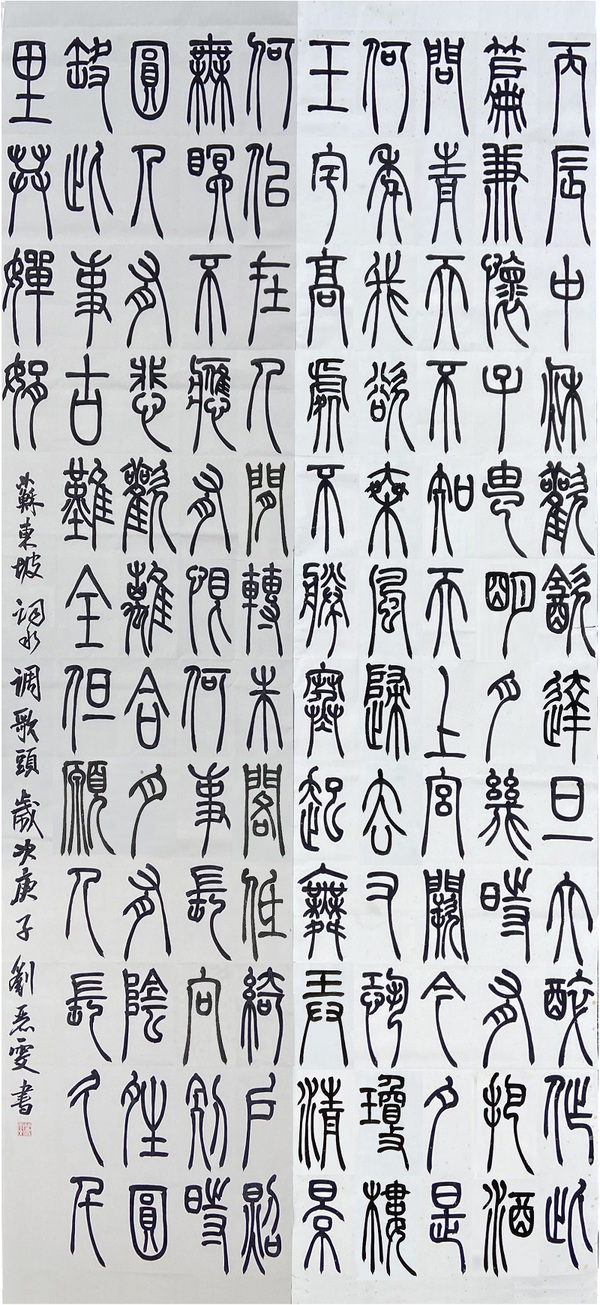 丙辰中秋歡飲達旦大醉作此
篇兼懷子由明月幾時有把酒
問青天不知天上宮闕今夕是
何年我欲乘風歸去又恐瓊樓
玉宇高處不勝寒起舞弄清景
何似在人間轉朱閣低綺戶照
無眠不應有恨何事長向別時
圓人有悲歡離合月有陰晴圓
缺此事古難全但願人長久千
里共嬋娟
蘇東坡词水调歌頭歲次庚子劉雯書